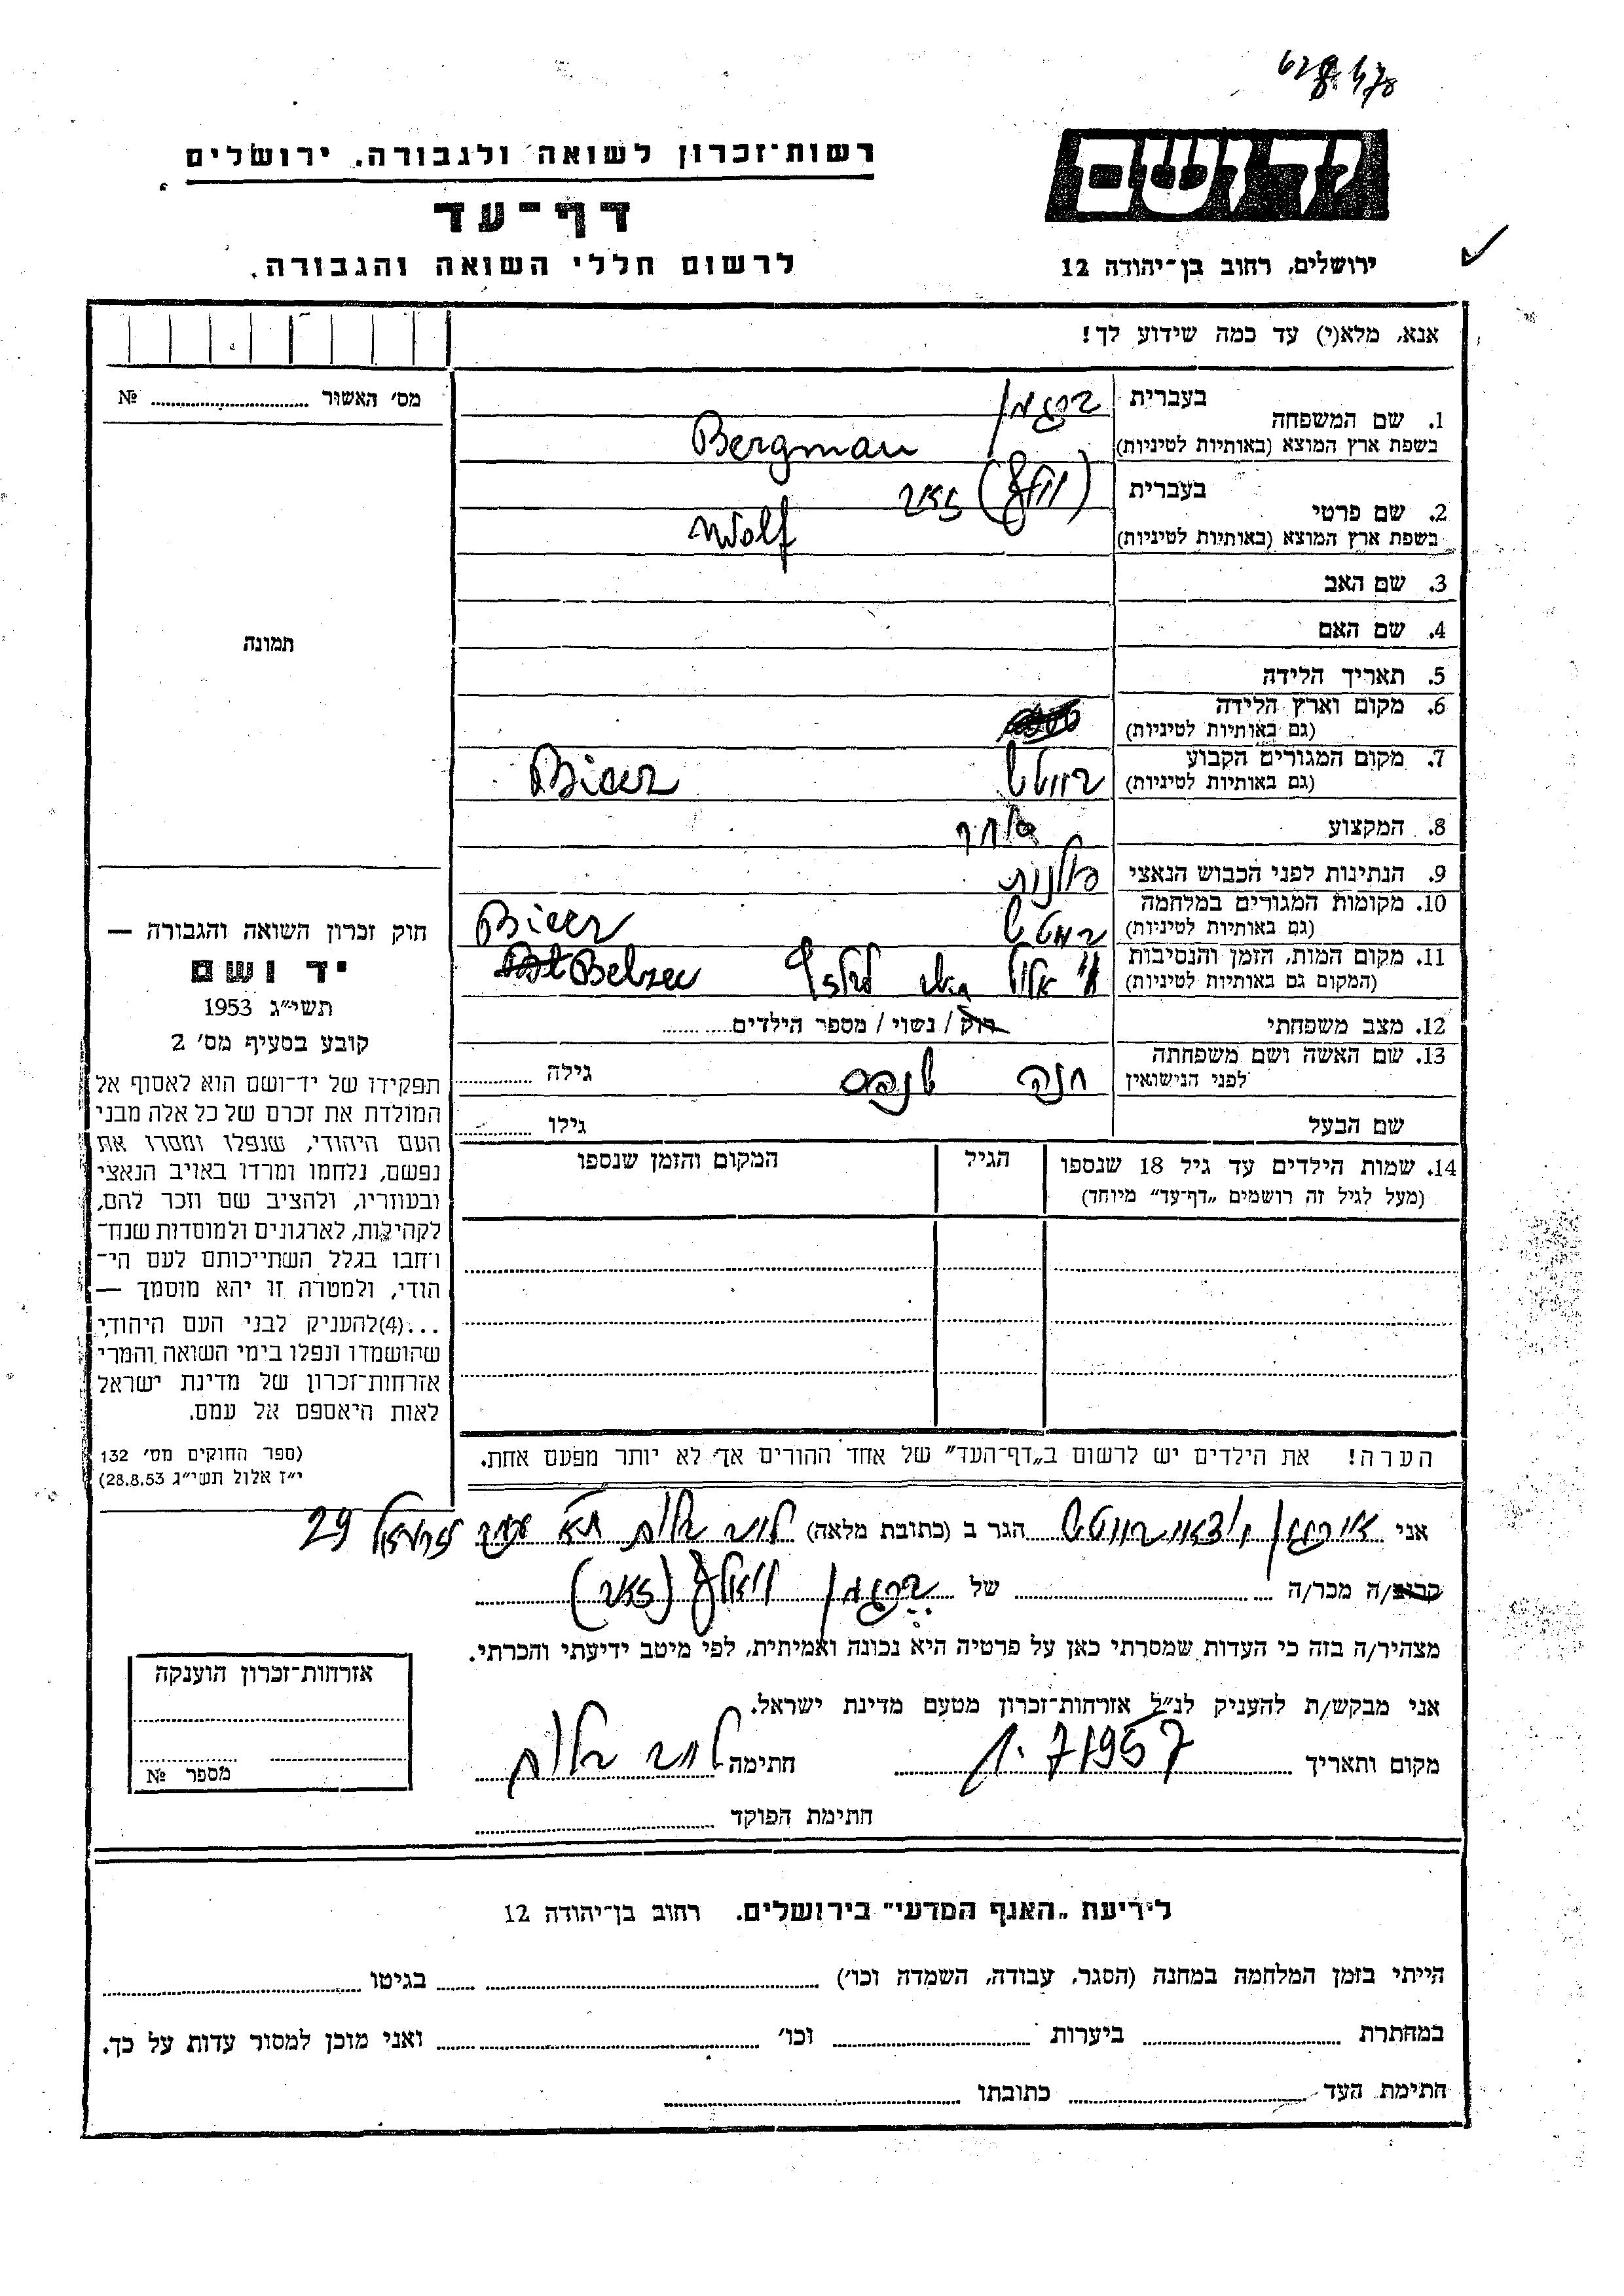 רשות־זכרון לשואה ולגבורה. ירושלים
יד ושם
דף־עד
לרשום חללי השואה והגבורה.
ירושלים, רחוב בן־יהודה 12
אנא, מלא(י) עד כמה שידוע לך!
מס׳ האשור № 
1. שם המשפחה בעברית ברגמן
בשפת ארץ המוצא (באותיות לטיניות) Bergman
2. שם פרטי בעברית (וולף) זאב
בשפת ארץ המוצא (באותיות לטיניות) Wolf
3. שם האב
4. שם האם
תמונה
5. תאריך הלידה
6. מקום וארץ הלידה
(גם באותיות לטיניות)
7. מקום המגורים הקבוע
(גם באותיות לטיניות) Biecz
8. המקצוע סוחר
9. הנתינות לפני הכבוש הנאצי פולנית
10. מקומות המגורים במלחמה
(גם באותיות לטיניות) Biecz
11. מקום המות, הזמן והנסיבות
(המקום גם באותיות לטיניות) אלול בלזץ Belzec
12. מצב משפחתי רוק / נשוי / מספר הילדים
13. שם האשה ושם משפחתה
לפני הנישואין חנה גילה
שם הבעל גילו
14. שמות הילדים עד גיל 18 שנספו הגיל המקום והזמן שנספו
(מעל לגיל זה רושמים „דף־עד” מיוחד)
חוק זכרון השואה והגבורה —
יד ושם
תשי״ג 1953
קובע בסעיף מס׳ 2
תפקידו של יד־ושם הוא לאסוף אל
המולדת את זכרם של כל אלה מבני
העם היהודי, שנפלו ומסרו את
נפשם, נלחמו ומרדו באויב הנאצי
ובעוזריו, ולהציב שם וזכר להם,
לקהילות, לארגונים ולמוסדות שנח־
רחבו בגלל השתייכותם לעם הי־
הודי, ולמטרה זו יהא מוסמך —
...(4)להעניק לבני העם היהודי
שהושמדו ונפלו בימי השואה והמרי
אזרחות־זכרון של מדינת ישראל
לאות היאספם אל עמם.
(ספר החוקים מס׳ 132
י״ז אלול תשי״ג 28.8.53)
הערה! את הילדים יש לרשום ב„דף־העד” של אחד ההורים אך לא יותר מפעם אחת.
אני ארגון יוצאי הגר ב (כתובת מלאה) 29
קרוב/ה מכר/ה של ברגמן וואלף (זאב)
מצהיר/ה בזה כי העדות שמסרתי כאן על פרטיה היא נכונה ואמיתית, לפי מיטב ידיעתי והכרתי.
אני מבקש/ת להעניק לנ״ל אזרחות־זכרון מטעם מדינת ישראל.
מקום ותאריך 1.7.1957 חתימה
חתימת הפוקד
אזרחות־זכרון הוענקה
מספר №
לידיעת „האגף המדעי” בירושלים. רחוב בן־יהודה 12
הייתי בזמן המלחמה במחנה (הסגר, עבודה, השמדה וכו׳) בגיטו
במחתרת ביערות וכו׳ ואני מוכן למסור עדות על כך.
חתימת העד כתובתו